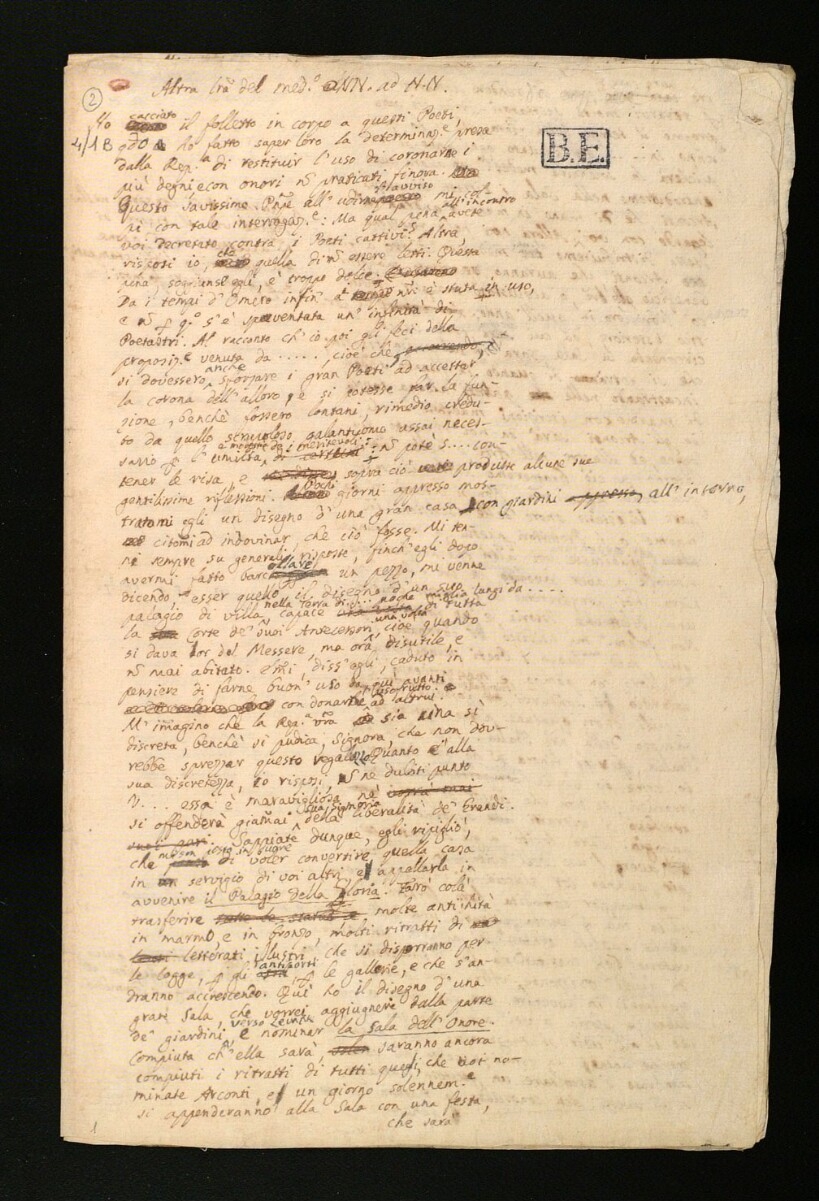 2
Altra lrã del med.º NN. ad N.N.
B.E.
Ho cacciato il folletto in corpo a questi Poeti,
4/1B ho fatto saper loro la determinaz.e presa
dalla Rep.a di restituir l'uso di coronare i
più degni e con onori nõ praticati finora.
Questo savissimo all' udirne mi col-
pì con tale interrogaz.e: Ma qual pena avete all'incontro
voi decretato contra i Poeti cattivi? Altra,
risposi io, che quella di nõ essere letti. Questa
pena, soggiunse egli, è troppo dolce.
Da i tempi d'Omero infin a' nr̃i è stata in uso,
e nõ p q.º s'è spaventata un' infinità di
Poetastri. Al racconto ch' io poi gli feci della
proposiz.e venuta da ..... cioè che
si dovessero anche sforzare i gran Poeti ad accettar
la corona dell' alloro, e si potesse far la fun-
zione, benchè fossero lontani, rimedio credu-
to da quello scrupoloso galantuomo assai neces-
sario p l'umiltà e modestia de i meritevoli: nõ potè S.... con-
tener le risa, e sopra ciò produsse alcune sue
gentilissime riflessioni. Pochi giorni appresso mos-
tratomi egli un disegno d'una gran casa con giardini all' intorno,
citomi ad indovinar, che ciò fosse. Mi ten-
ni sempre su generali risposte, finch'egli dopo
avermi fatto un pezzo, mi venne
dicendo esser quello il disegno d'un suo
palagio di villa nella Terra di ... poche miglia lungi da ....
capace di tutta
la Corte de' suoi Antecessori, cioè quando una volta
si dava tor del Messere, ma ora disutile, e
nõ mai abitato. diss' egli, caduto in
pensiere di farne buon' uso da quì avanti
con donarne l'usofrutto ad altrui.
M' imagino che la Rep.a vr̃a sia una sì
discreta, benchè sì pudica, Signora, che non dov-
rebbe sprezzar questo regalo. Quanto è alla
sua discretezza, io risposi, nõ ne dubiti punto
V.... essa è maravigliosa, nè
si offenderà giammai della liberalità de' Grandi.
Sappiate dunque, egli ripigliò,
che di voler convertire quella casa
in servigio di voi altri, e appellarla in
avvenire il Palagio della Gloria. Farò colà
trasferire molte antichità
in marmo e in bronzo, molti ritratti di
letterati illustri, che si disporranno per
le logge, p gli p le gallerie, e che s'an-
dranno accrescendo. Quì ho il disegno d'una
gran Sala, che vorrei aggiugnere dalla parte
de' giardini verso Levante, e nominar la Sala dell' Onore.
Compiuta ch' ella sarà, saranno ancora
compiuti i ritratti di tutti quegli, che voi no-
minate Arconti, e un giorno solennem.e
si appenderanno alla Sala con una festa,
che sarà